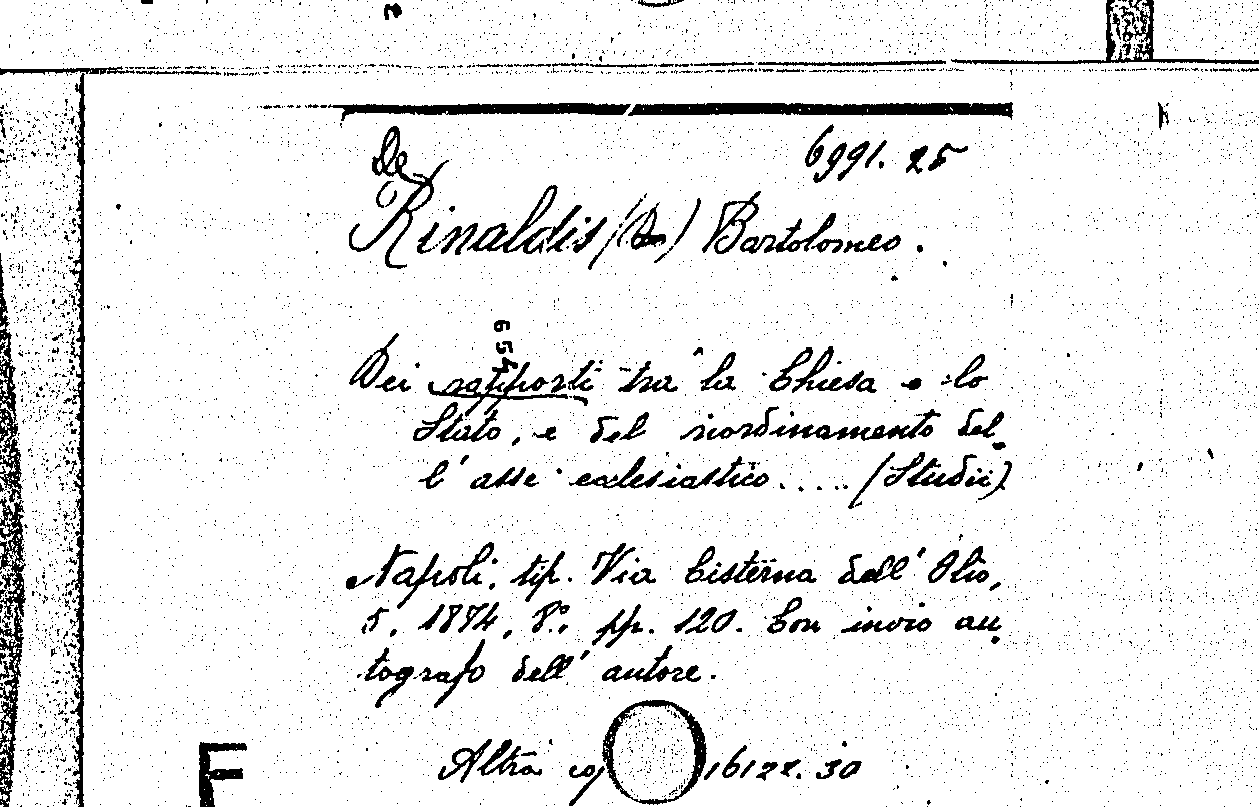 6991. 25
De
Rinaldis (De) Bartolomeo.
654
Dei rapporti tra la Chiesa e lo
Stato, e del riordinamento del
l'asse ecclesiastico..... (Studii)
Napoli, tip. Via Cisterna dell'Olio,
5, 1874, 8º, pp. 120. Con invio au
tografo dell'autore.
Altra 16122. 30
F